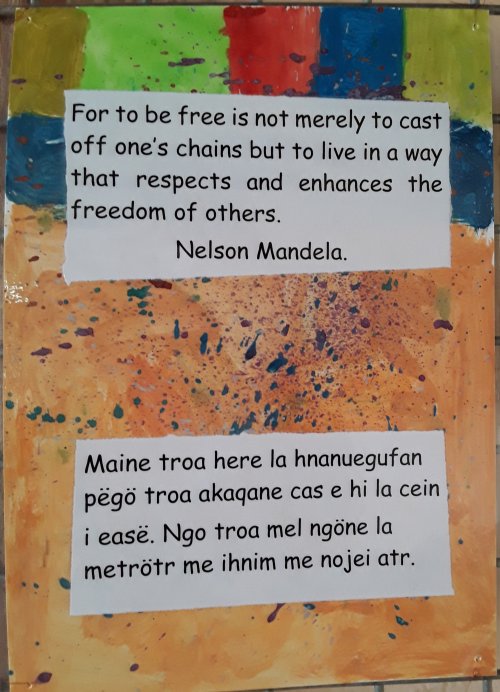 For to be free is not merely to cast
off one's chains but to live in a way
that respects and enhances the
freedom of others.
Nelson Mandela.
Maine troa here la hnanuegufan
pëgö troa akaqane cas e hi la cein
i easë. Ngo troa mel ngöne la
metrötr me ihnim me nojei atr.